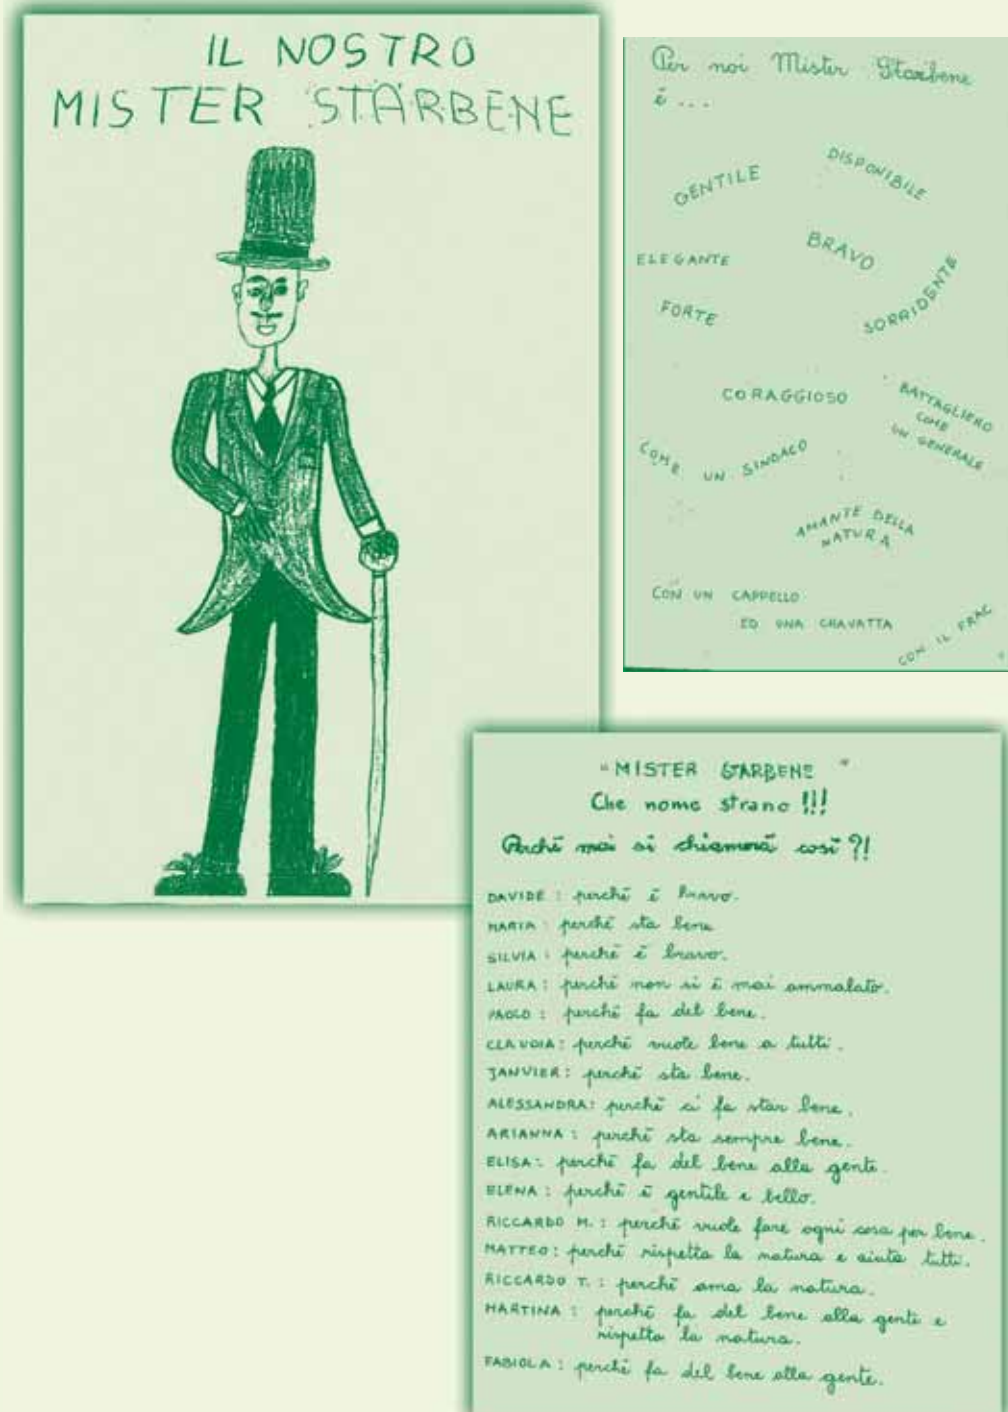 IL NOSTRO
MISTER STARBENE
Per noi Mister Starbene
è ...
GENTILE
DISPONIBILE
ELEGANTE
BRAVO
FORTE
SORRIDENTE
CORAGGIOSO
BATTAGLIERO
COME
UN GENERALE
COME UN SINDACO
AMANTE DELLA
NATURA
CON UN CAPPELLO
ED UNA CRAVATTA
CON IL FRAC
"MISTER STARBENE"
Che nome strano!!!
Perché mai si chiamerà così?!
DAVIDE: perché è bravo.
MARIA: perché sta bene
SILVIA: perché è bravo.
LAURA: perché non si è mai ammalato.
PAOLO: perché fa del bene.
CLAUDIA: perché vuole bene a tutti.
JANVIER: perché sta bene.
ALESSANDRA: perché ci fa star bene.
ARIANNA: perché sta sempre bene.
ELISA: perché fa del bene alla gente.
ELENA: perché è gentile e bello.
RICCARDO M.: perché vuole fare ogni cosa per bene.
MATTEO: perché rispetta la natura e aiuta tutti.
RICCARDO T.: perché ama la natura.
MARTINA: perché fa del bene alla gente e
rispetta la natura.
FABIOLA: perché fa del bene alla gente.